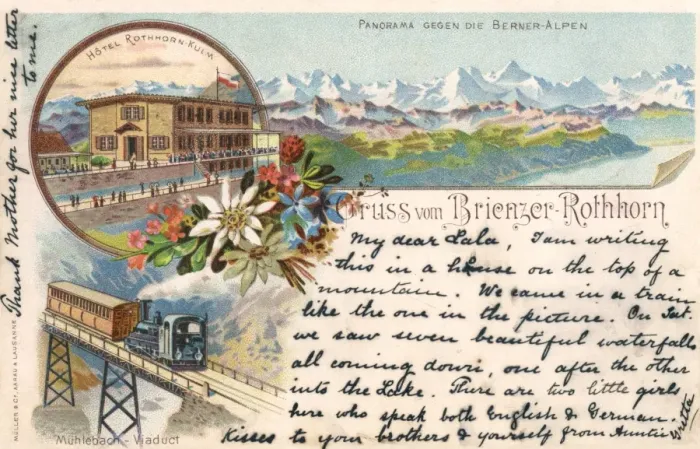 PANORAMA GEGEN DIE BERNER-ALPEN
HÔTEL ROTHHORN-KULM
Gruss vom Brienzer-Rothhorn
My dear Lala, I am writing
this in a house on the top of a
mountain. We came in a train
like the one in the picture. On Sat.
we saw seven beautiful waterfalls
all coming down, one after the other
into the Lake. There are two little girls
here who speak both English & German.
Kisses to your brothers & yourself from Auntie
Gretta
Thank Mother for her nice letter
to me.
MÜLLER & Co, AARAU & LAUSANNE
Mühlebach-Viaduct